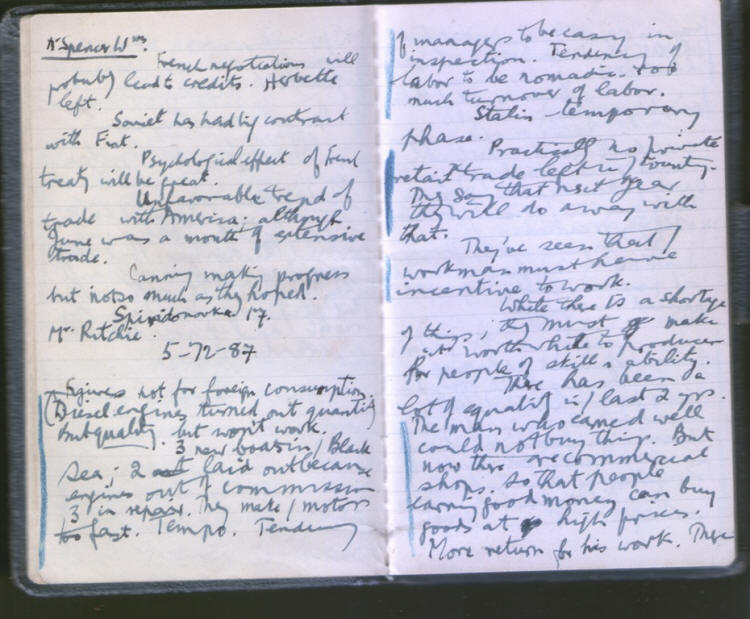 Mr Spencer Wms.
French negotiations will
probably lead to credits. Herbette
left.
Soviet has had big contract
with Fiat.
Psychological effect of French
treaty will be great.
Unfavourable trend of
trade with America; although
June was a month of extensive
trade.
Canning making progress
but not so much as they hoped.
Spiridonovka 17.
Mr. Ritchie.
5-72-87
Figures not for foreign consumption
(Diesel engines turned out quantity
but quality. but won't work.
3 new boats in / Black
Sea; 2 laid out because
engines out of commission
3 in repair. They make / motors
too fast. Tempo. Tendency
of managers to be easy in
inspection. Tendency of
labor to be nomadic. Too
much turnover of labor.
Stalin temporary
phase.
Practically no private
retail trade left in / country.
They say that next year
they will do away with
that.
They've seen that /
workman must have
incentive to work.
While there is a shortage
of things, they must make
it worth while to producer
for people of skill & ability.
There has been a
lot of equality in / last 2 yrs.
The man who earned well
could not buy things. But
now there are commercial
shops. So that people
earning good money can buy
goods at high prices.
More return for his work. There